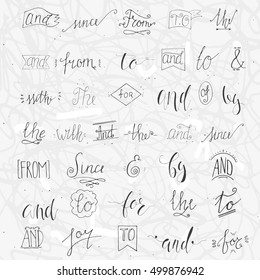 and since From TO the
and from to and to &
with The for and of by
the with And the and since
[FROM] Since & by AND
and to for the to
AND for TO and for
499876942